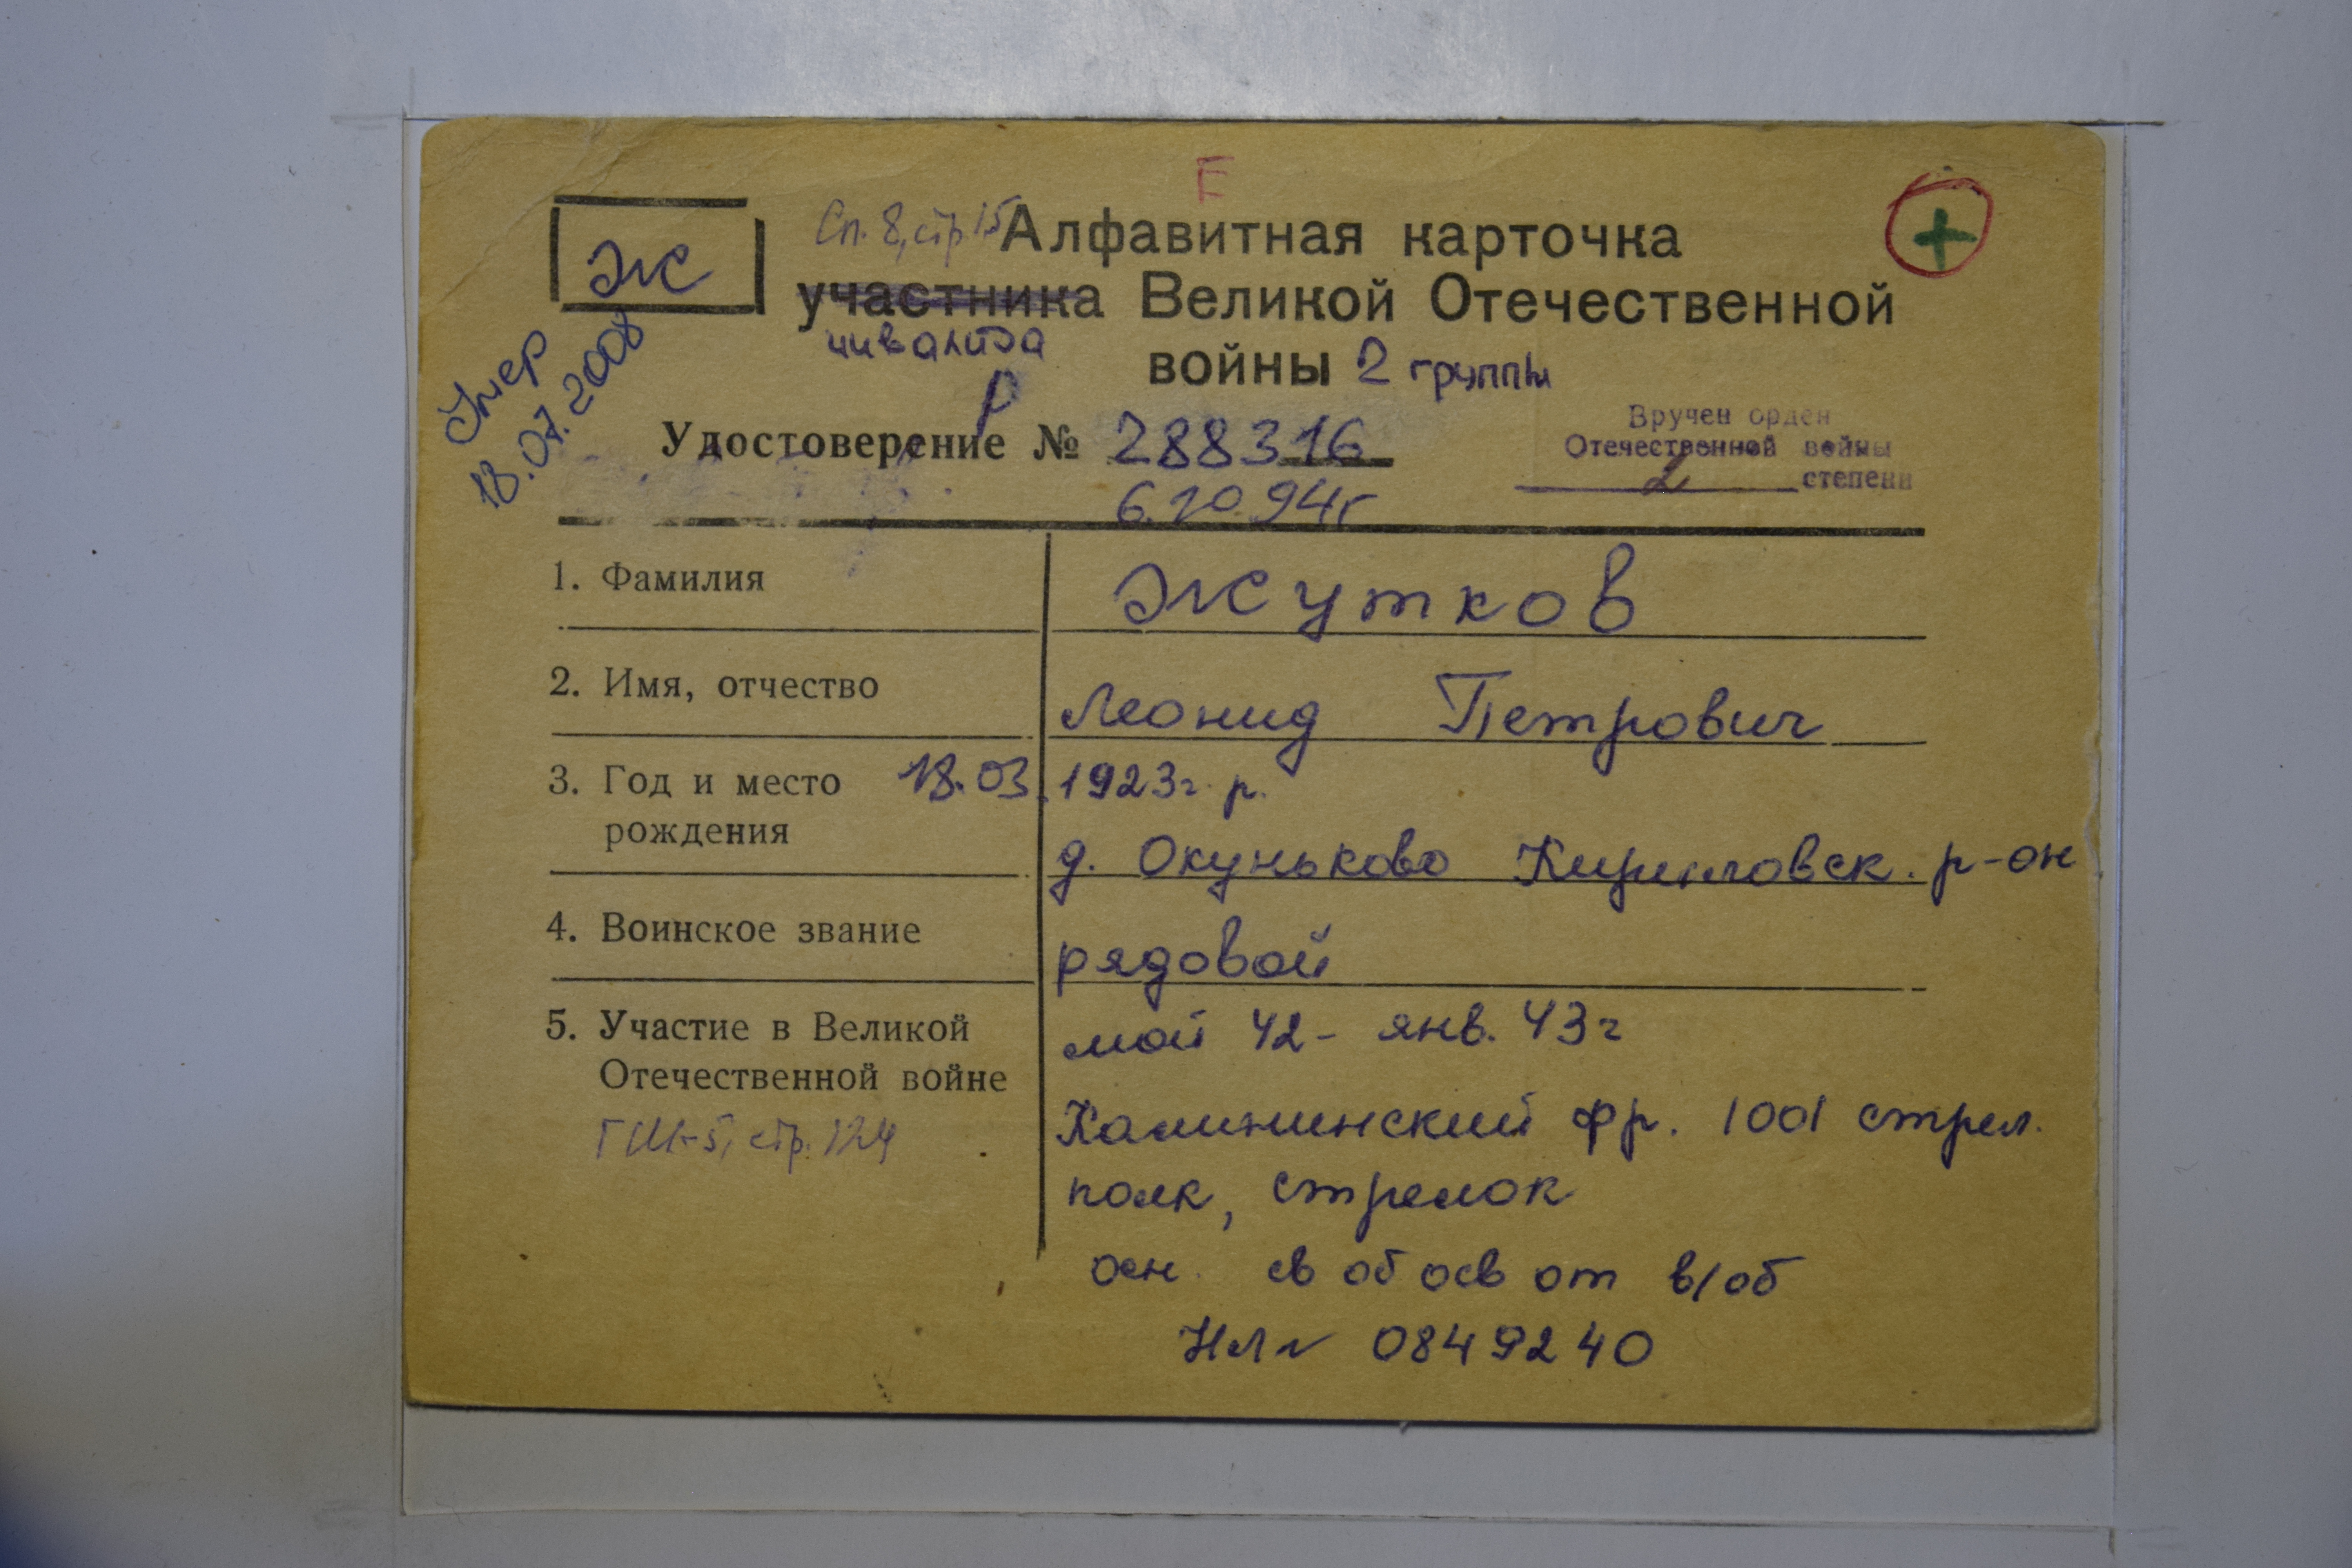 Е
Ж
Сп. 8, стр. 15
Алфавитная карточка
участника Великой Отечественной
инвалида
войны 2 группы
Умер
18.07.2008
Р
Удостоверение № 288316
6.10 94г
Вручен орден
Отечественной войны
2 степени
1. Фамилия Жутков
2. Имя, отчество Леонид Петрович
3. Год и место 18.03. 1923г. р.
рождения д. Окуньково Кирилловск. р-он
4. Воинское звание рядовой
5. Участие в Великой май 42 - янв. 43г
Отечественной войне Калининский фр. 1001 стрел.
ГШ-5, стр. 124
полк, стрелок
осн. св об осв от в/об
НЛ № 0849240